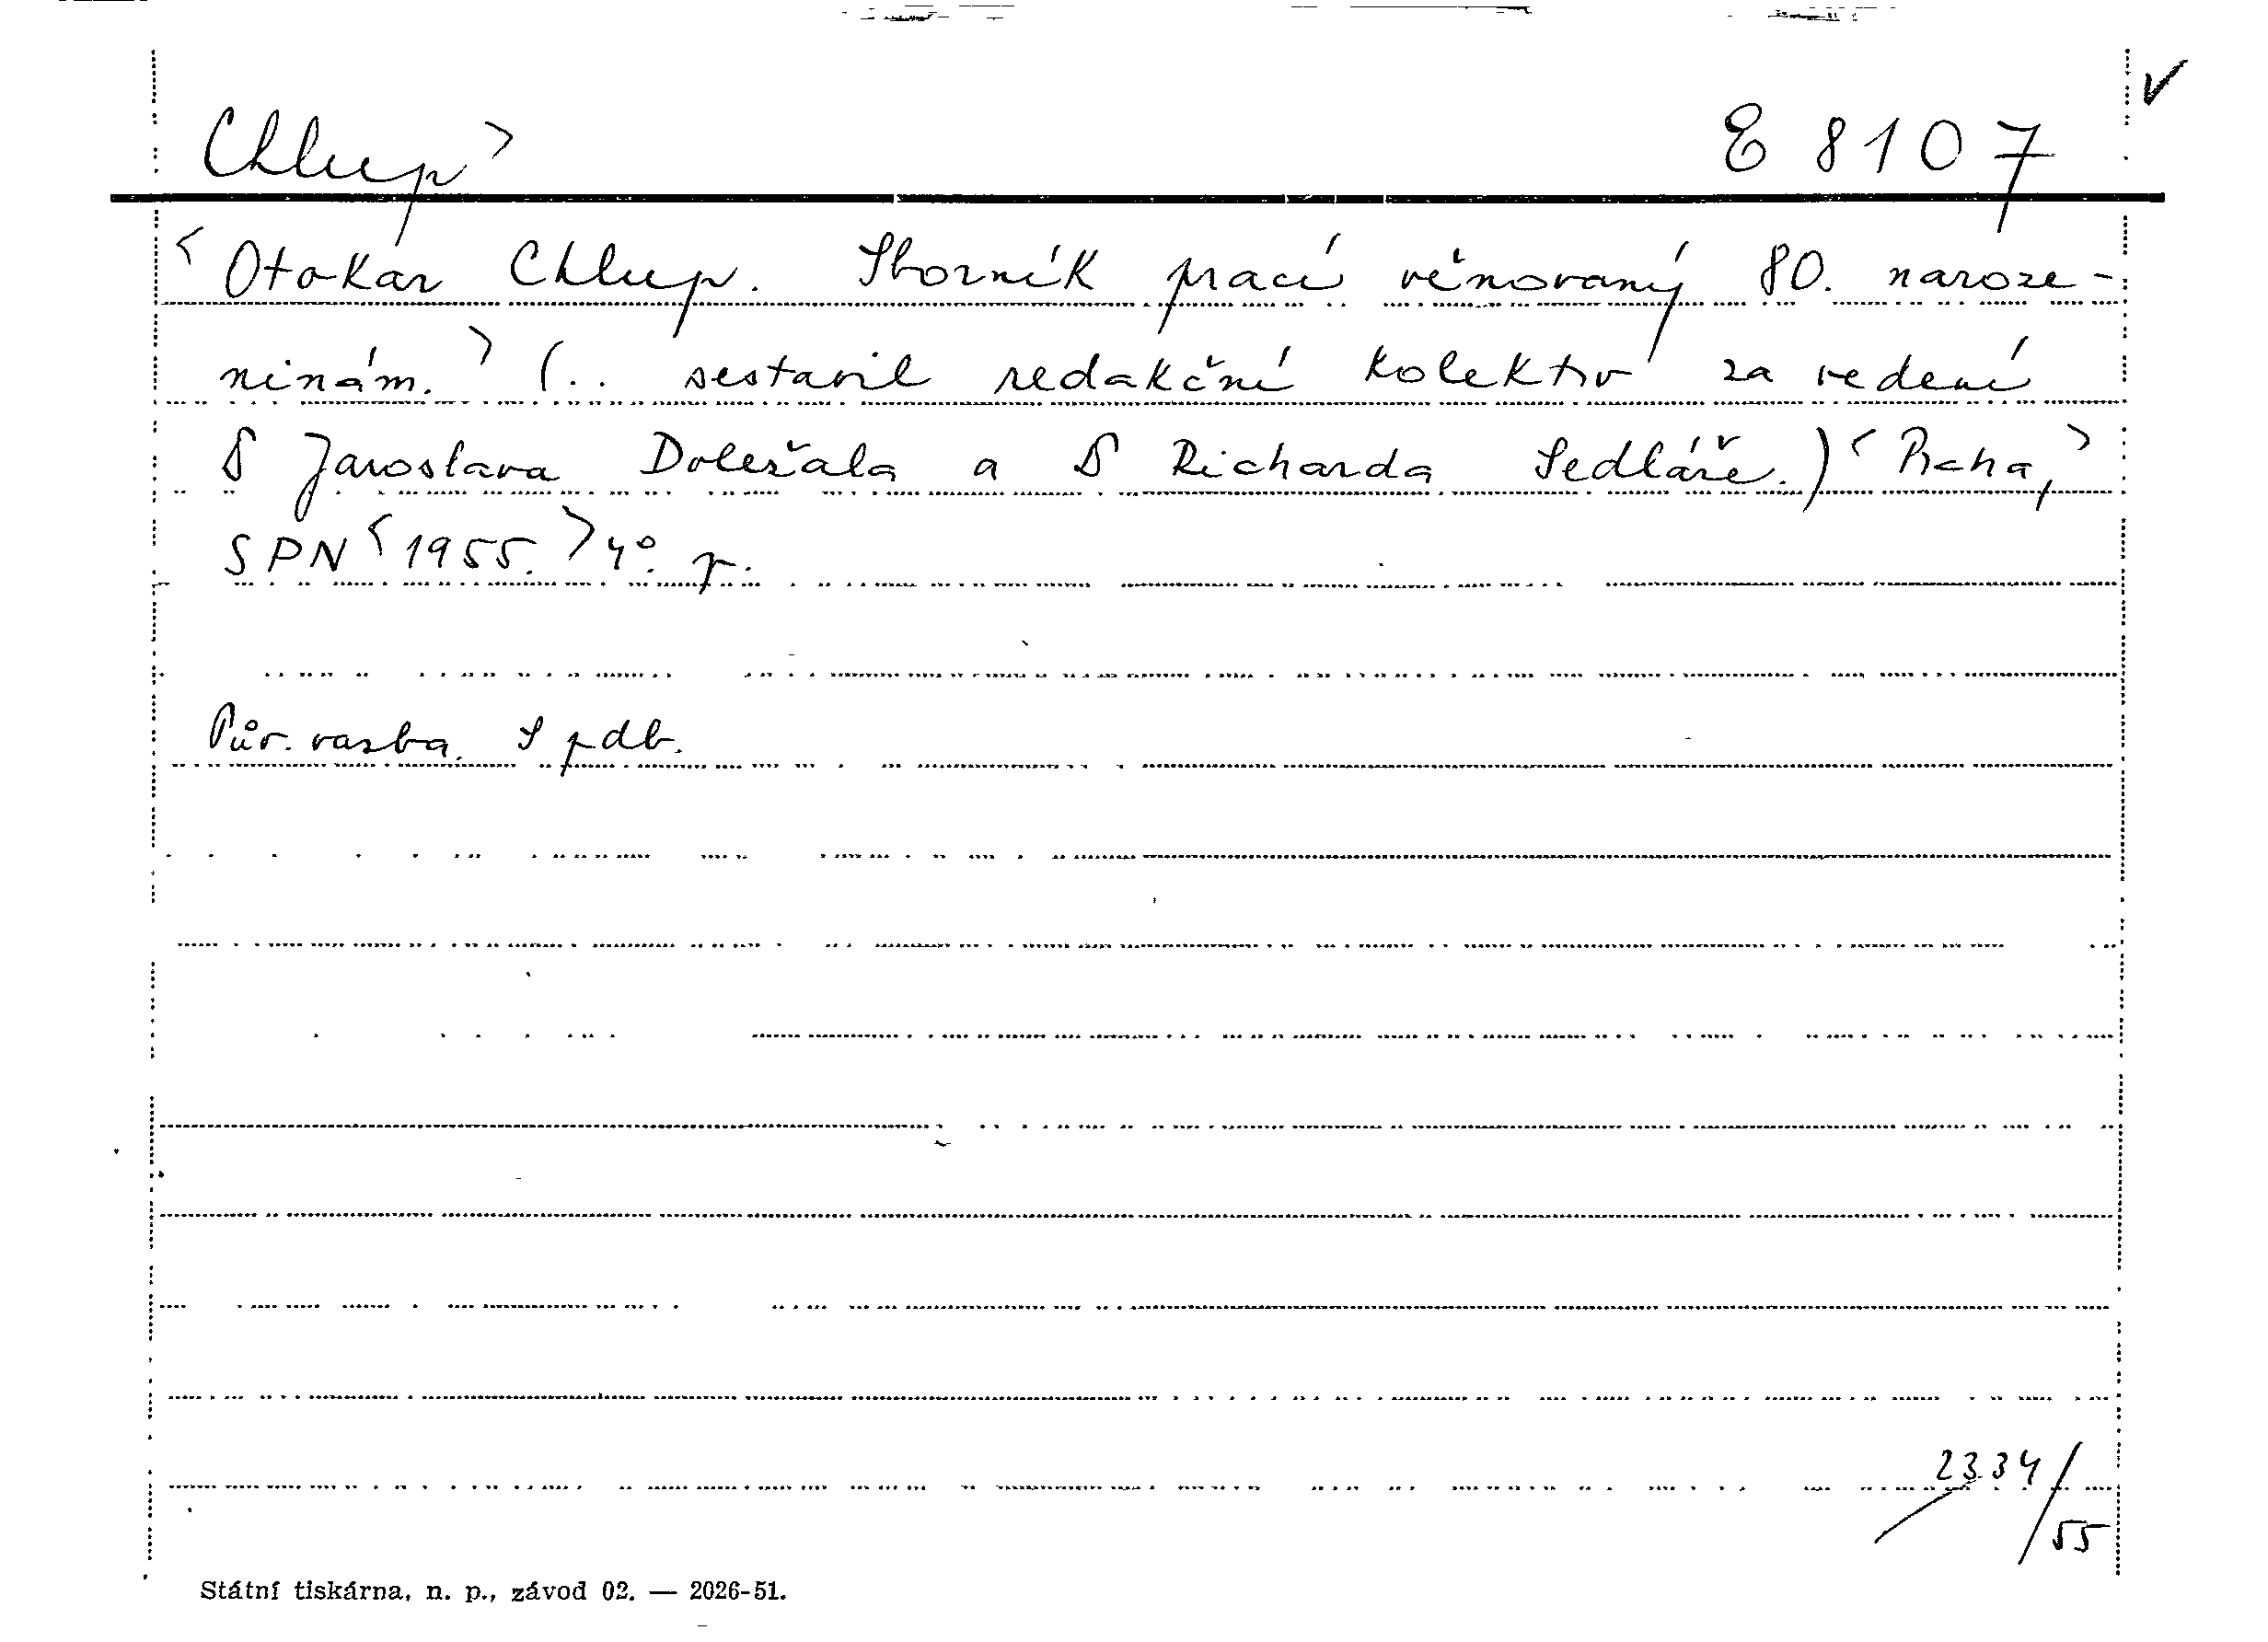 Chlup> E 8107
<Otokar Chlup. Sborník prací věnovaný 80. naroze-
ninám.> (.. sestavil redakční kolektiv za vedení
Jaroslava Doležala a Richarda Sedláře.) <Praha,>
SPN <1955.> 4°. p.
Pův. vazba. S pdb.
2334/
55
Státní tiskárna, n. p., závod 02. — 2026-51.